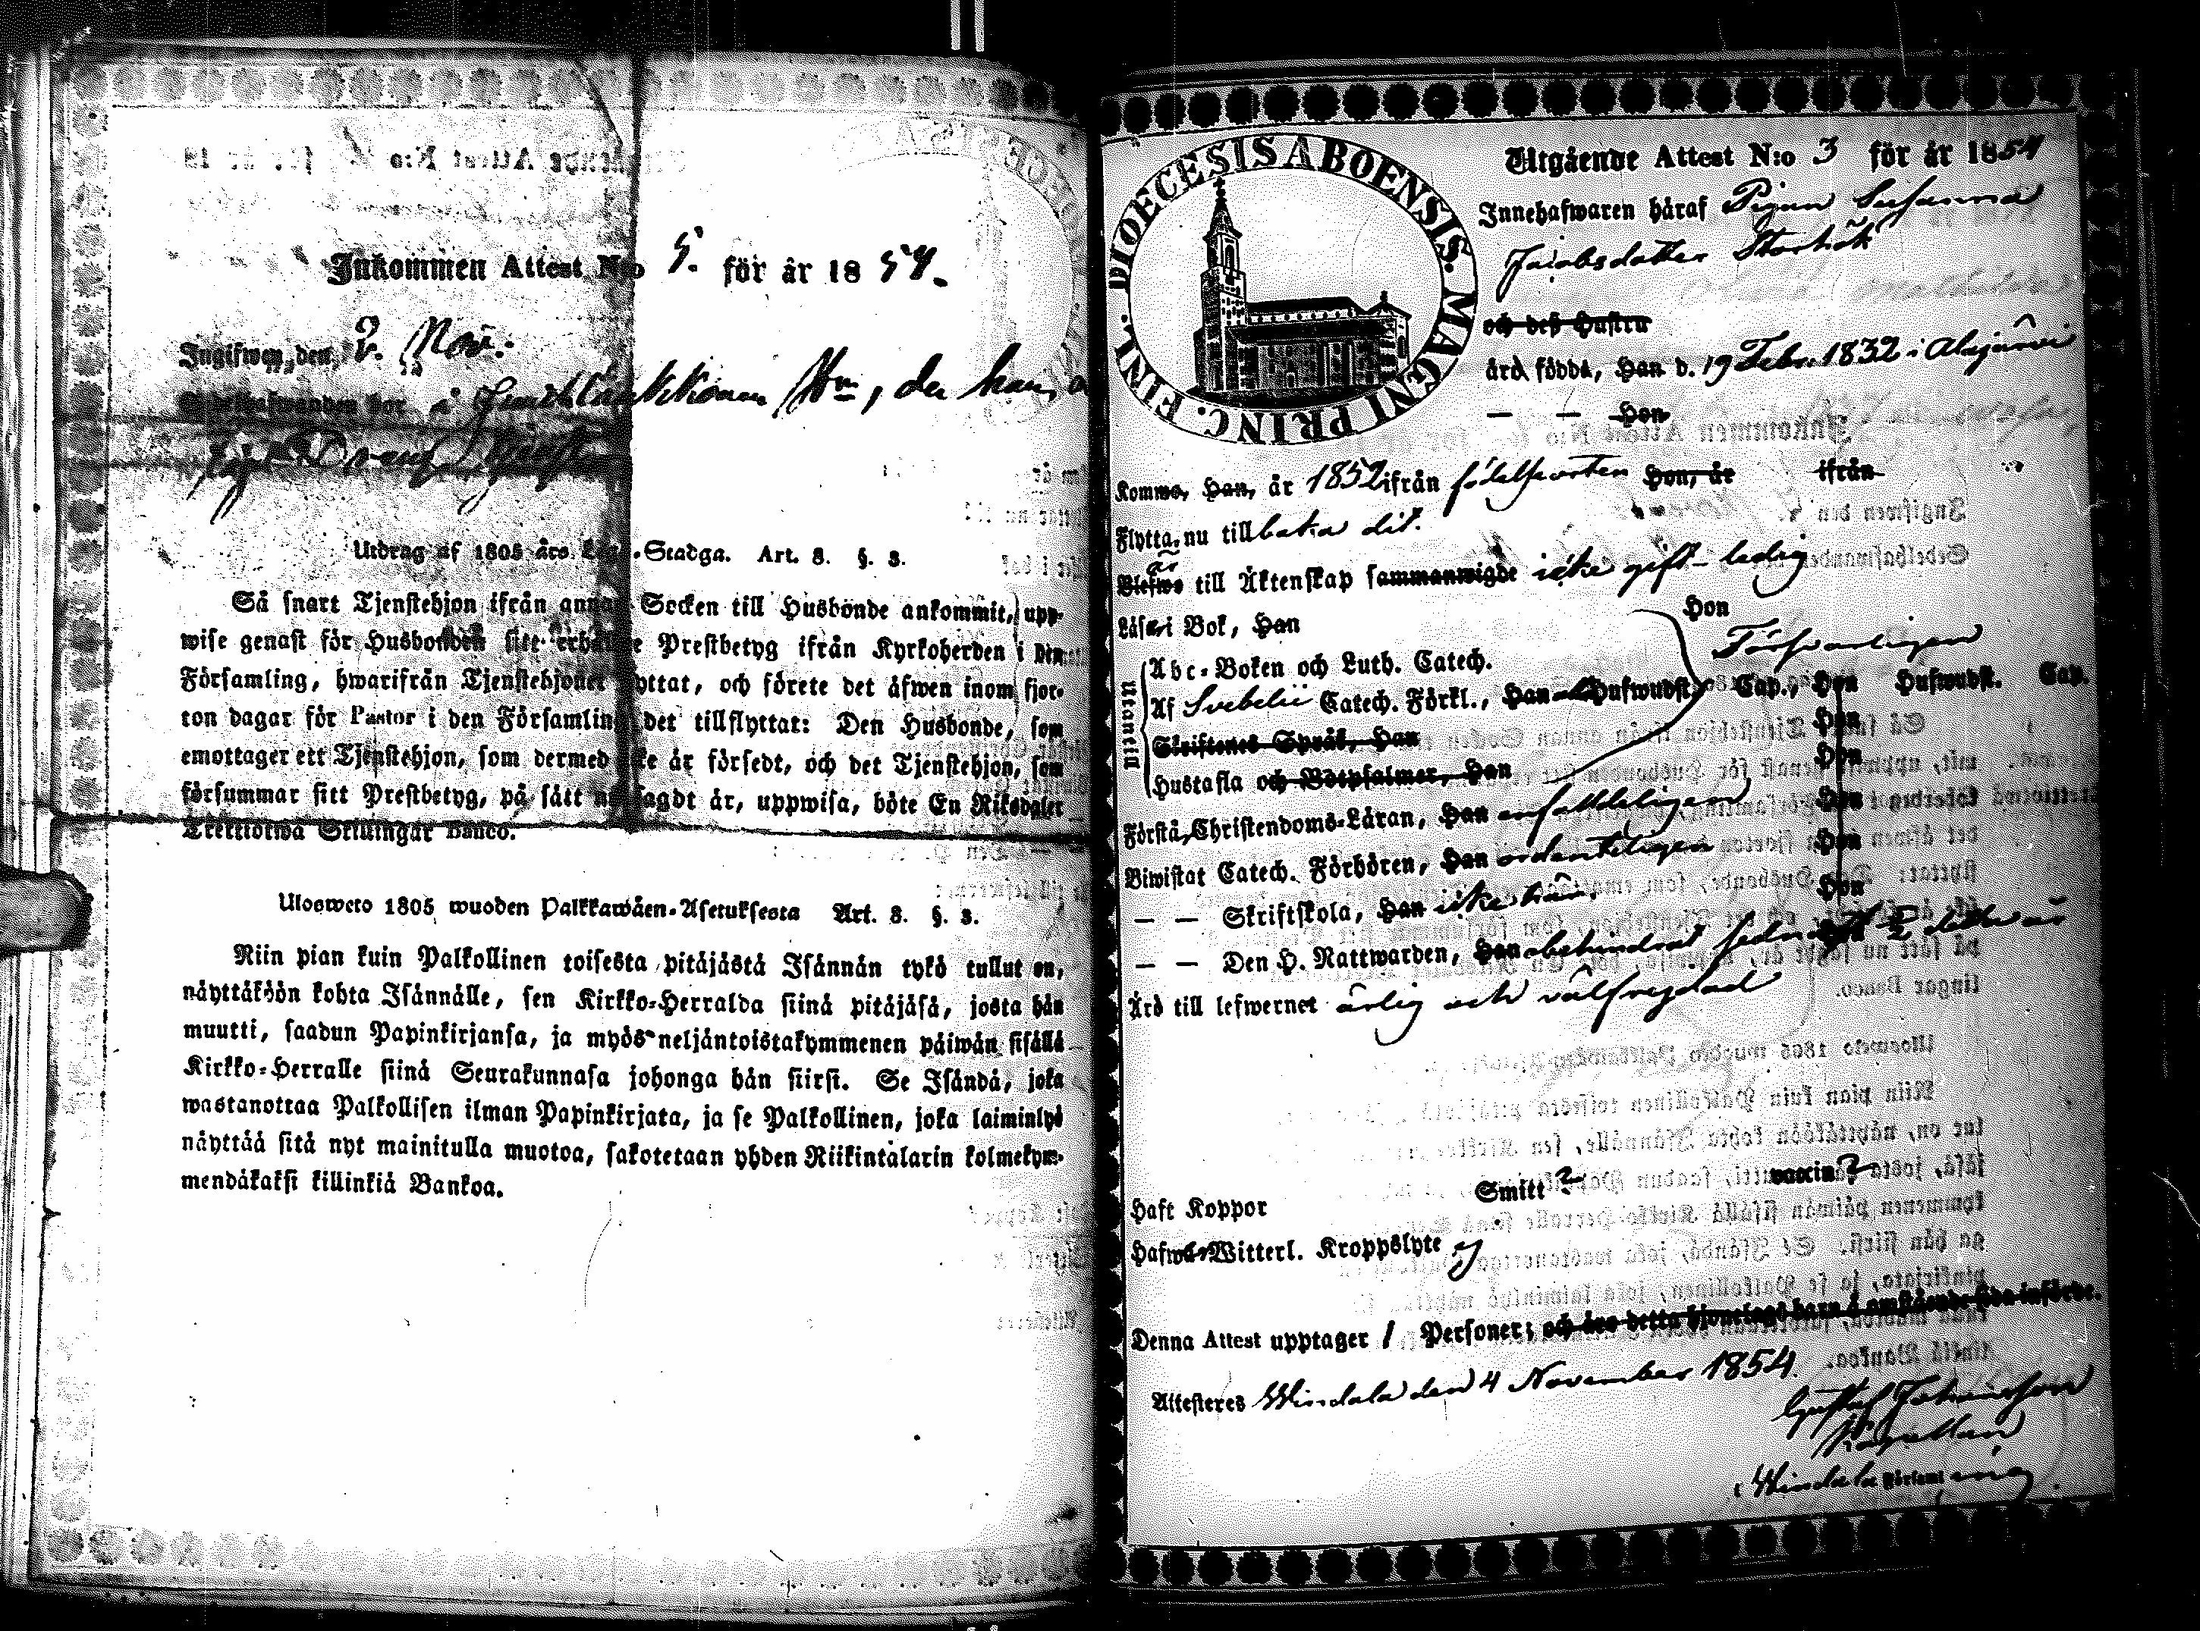 Inkommen Attest N:o 5. för år 1854.
Ingifwen den 2. Nov:
å
Utdrag af 1805 års Lego-Stadga. Art. 8. §. 3.
Så snart Tjenstehjon ifrån annan Socken till Husbonde ankommit, upp-
wise genast för Husbonden sitt erhållne Prestbetyg ifrån Kyrkoherden i den
Församling, hwarifrån Tjenstehjonet flyttat, och förete det äfwen inom fjor-
ton dagar för Pastor i den Församling det tillflyttat: Den Husbonde, som
emottager ett Tjenstehjon, som dermed icke är försedt, och det Tjenstehjon, som
försummar sitt Prestbetyg, på sätt nu sagdt är, uppwisa, böte En Riksdaler
Trettiotwå Skillingar Banco.
Ulosweto 1805 wuoden Palkkawäen-Asetuksesta Art. 8. §. 3.
Niin pian kuin Palkollinen toisesta pitäjästä Isännän tykö tullut on,
näyttäköön kohta Isännälle, sen Kirkko-Herralda siinä pitäjäsä, josta hän
muutti, saadun Papinkirjansa, ja myös neljäntoistakymmenen päiwän sisällä
Kirkko-Herralle siinä Seurakunnasa johonga hän siirsi. Se Isändä, joka
wastanottaa Palkollisen ilman Papinkirjata, ja se Palkollinen, joka laiminlyö
näyttää sitä nyt mainitulla muotoa, sakotetaan yhden Riikintalarin kolmekym-
mendäkaksi killinkiä Bankoa.
DIOECESIS ABOENSIS. MAGNI PRINC. FINL.
Utgående Attest N:o 3 för år 1854
Innehafwaren häraf Pigan Susanna
Jacobsdotter Storhök
och deß Hustru
äro födde, Han d. 19 Febr. 1832 i Alajärvi
— — Hon
Komme, Han, år 1852 ifrån födelseorten Hon, år ifrån
Flytta, nu till baka dit.
Blefwo är till Äktenskap sammanwigde icke gift - ledig
Läser i Bok, Han Hon
Försvarligen
Utantill
Abc-Boken och Luth. Catech.
Af Svebelii Catech. Förkl., Han Hufwudst. Cap., Hon Hufwudst. Cap.
Skriftenes Språk, Han Hon
Hustafla och Botpsalmer, Han Hon
Förstå Christendoms-Läran, Han enfaldeligen Hon
Biwistat Catech. Förhören, Han ordenteligen Hon
— — Skriftskola, Han icke här. Hon
— — Den H. Nattwarden, Han obehindrat sednast 2 detta år
Äro till lefwernet ärlig och välfrejdad
Haft Koppor Smitt ? vaccin ?
Hafwa Witterl. Kroppslyte ej
Denna Attest upptager 1 Personer; och äro detta hjonelags barn å omstående sida införde.
Attesteres Windala den 4 November 1854.
Gustaf Johansson
Kapellan
i Windala Församling